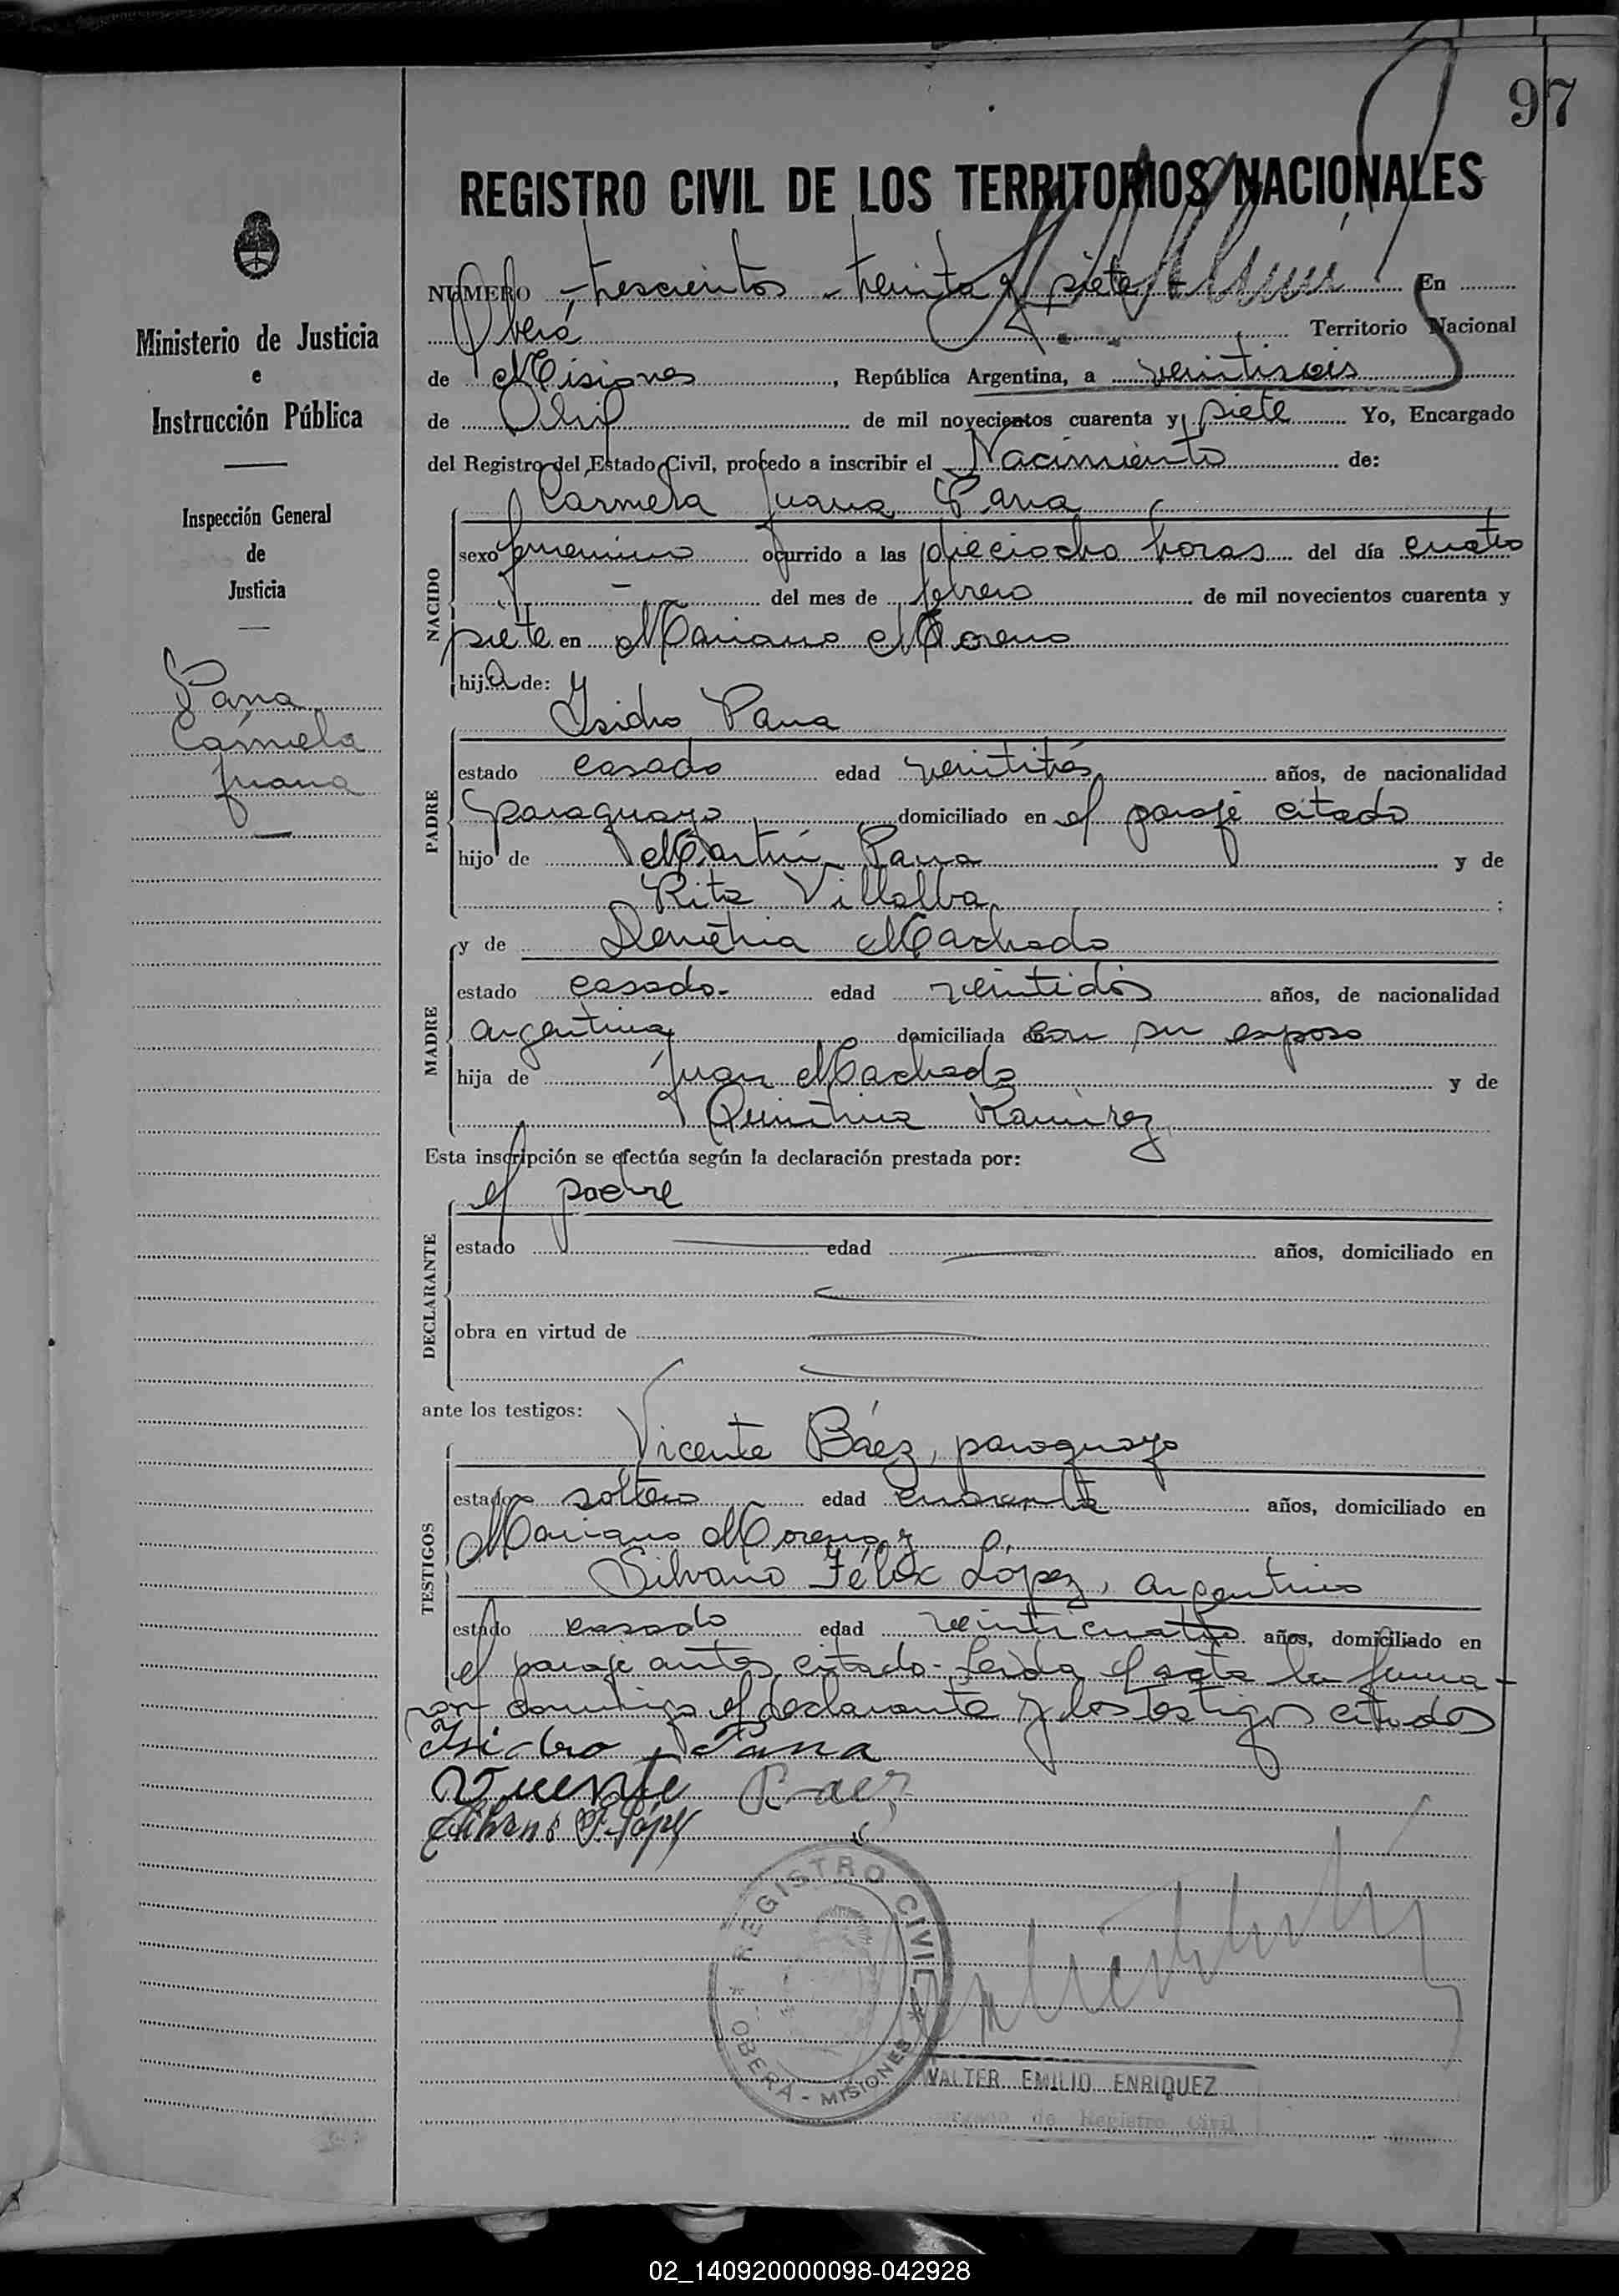 97
REGISTRO CIVIL DE LOS TERRITORIOS NACIONALES
Ministerio de Justicia
e
Instrucción Pública
Inspección General
de
Justicia
Pana
Carmela
Juana
NUMERO - trescientos - treinta y siete - En
Oberá Territorio Nacional
de Misiones, República Argentina, a veintiseis
de Abril de mil novecientos cuarenta y siete Yo, Encargado
del Registro del Estado Civil, procedo a inscribir el Nacimiento de:
Carmela Juana Pana
NACIDO
sexo femenino ocurrido a las dieciocho horas del día cuatro
- del mes de febrero de mil novecientos cuarenta y
siete en Mariano Moreno
hija de:
Isidro Pana
PADRE
estado casado edad veintitrés años, de nacionalidad
paraguayo domiciliado en el paraje citado
hijo de Martín Pana y de
Rita Villalba ;
y de Demetria Machado
MADRE
estado casada- edad veintidós años, de nacionalidad
argentina domiciliada con su esposo
hija de Juan Machado y de
Quintina Ramirez
Esta inscripción se efectúa según la declaración prestada por:
el padre
DECLARANTE
estado edad años, domiciliado en
obra en virtud de
ante los testigos:
Vicente Báez, paraguayo
TESTIGOS
estado soltero edad cuarenta años, domiciliado en
Mariano Moreno y
Silvano Félix López, argentino
estado casado edad veinticuatro años, domiciliado en
el paraje antes citado- Leída el acta la firma-
ron conmigo el declarante y los testigos citados
Isidro Pana
Vicente Baez
Silvano F. López
REGISTRO CIVIL
OBERA - MISIONES
WALTER EMILIO ENRIQUEZ
de Registro Civil
02_140920000098-042928